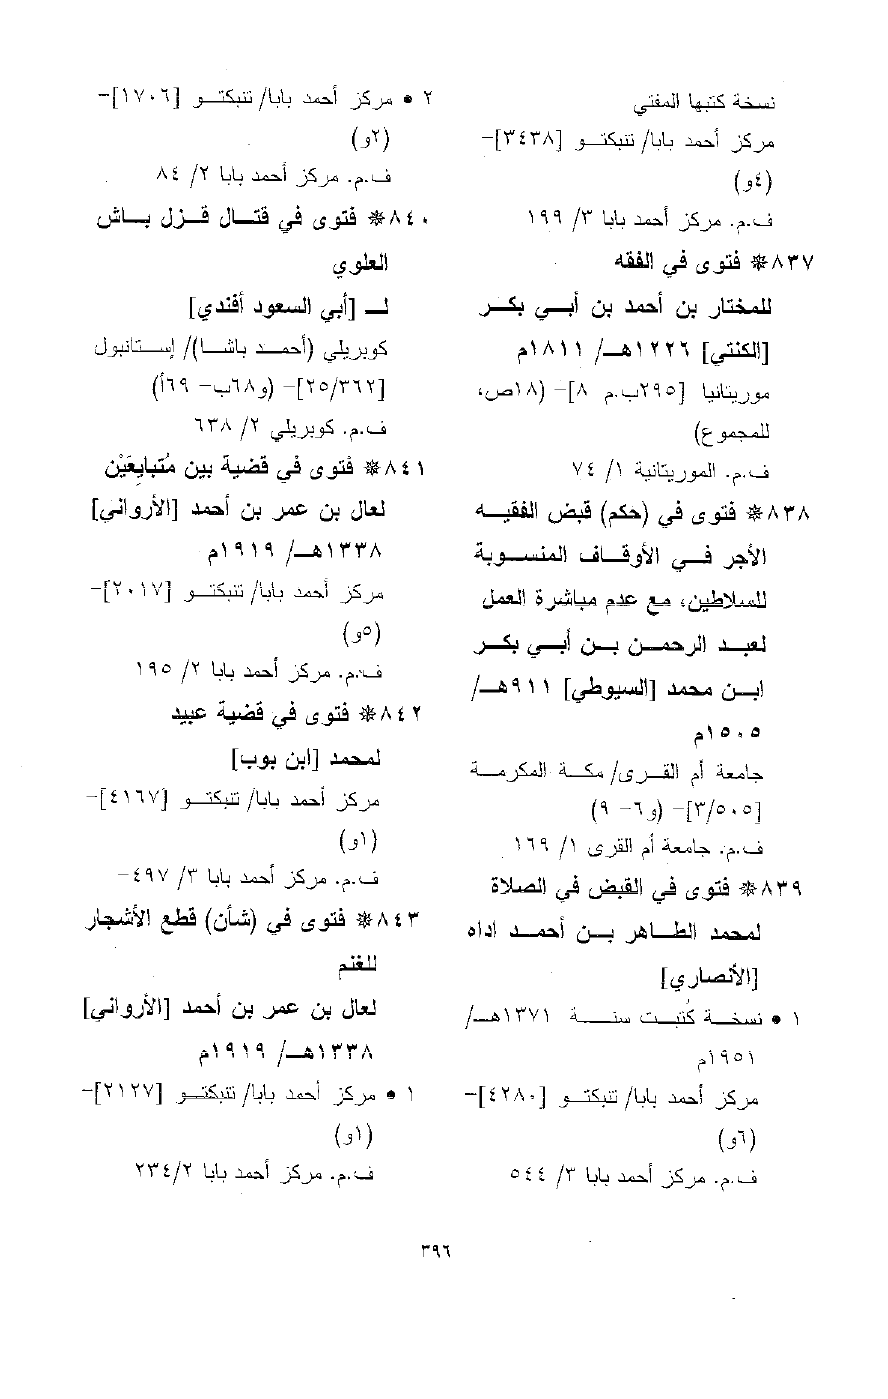 نسخة كتبها المفتي
مركز أحمد بابا/ تنبكتـو [٣٤٣٨]-
(٤و)
ف.م. مركز أحمد بابا ٣/ ١٩٩
٨٣٧* فتوى في الفقه
للمختار بن أحمد بن أبـي بكـر
[الكنتي] ١٢٢٦هـ/ ١٨١١م
موريتانيا [٢٩٥ب.م ٨]- (١٨ص،
للمجموع)
ف.م. الموريتانية ١/ ٧٤
٨٣٨* فتوى في (حكم) قبض الفقيـه
الأجر فـي الأوقـاف المنسـوبة
للسلاطين، مع عدم مباشرة العمل
لعبـد الرحمـن بـن أبـي بكـر
ابـن محمد [السيوطي] ٩١١هـ/
١٥٠٥م
جامعة أم القـرى/ مكـة المكرمـة
[٣/٥٠٥]- (و٦- ٩)
ف.م. جامعة أم القرى ١/ ١٦٩
٨٣٩* فتوى في القبض في الصلاة
لمحمد الطـاهر بـن أحمـد اداه
[الأنصاري]
١ • نسخـة كُتبـت سـنـة ١٣٧١هـ/
١٩٥١م
مركز أحمد بابا/ تنبكتـو [٤٢٨٠]-
(٦و)
ف.م. مركز أحمد بابا ٣/ ٥٤٤
٢ • مركز أحمد بابا/ تنبكتـو [١٧٠٦]-
(٢و)
ف.م. مركز أحمد بابا ٢/ ٨٤
٨٤٠* فتوى في قتـال قـزل بـاش
العلوي
لـ [أبي السعود أفندي]
كوبريلي (أحمـد باشـا)/ إسـتانبول
[٢٥/٣٦٢]- (و٦٨ب- ٦٩أ)
ف.م. كوبريلي ٢/ ٦٣٨
٨٤١* فتوى في قضية بين مُتبايِعَيْن
لعال بن عمر بن أحمد [الأرواني]
١٣٣٨هـ/ ١٩١٩م
مركز أحمد بابا/ تنبكتـو [٢٠١٧]-
(٥و)
ف.م. مركز أحمد بابا ٢/ ١٩٥
٨٤٢* فتوى في قضية عبيد
لمحمد [ابن بوب]
مركز أحمد بابا/ تنبكتـو [٤١٦٧]-
(١و)
ف.م. مركز أحمد بابا ٣/ ٤٩٧-
٨٤٣* فتوى في (شأن) قطع الأشجار
للغنم
لعال بن عمر بن أحمد [الأرواني]
١٣٣٨هـ/ ١٩١٩م
١ • مركز أحمد بابا/ تنبكتـو [٢١٢٧]-
(١و)
ف.م. مركز أحمد بابا ٢/٢٣٤
٣٩٦